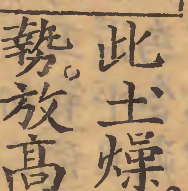 此土燥
勢。放高